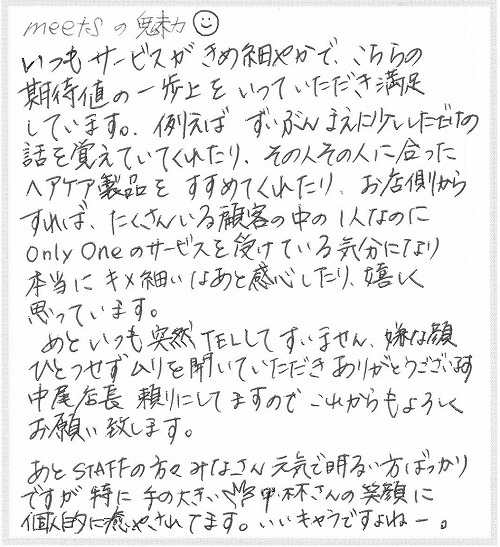 meetsの魅力
いつもサービスがきめ細やかで、こちらの
期待値の一歩上をいっていただき満足
しています。例えば ずいぶんまえに少しいただけの
話を覚えていてくれたり、その人その人に合った
ヘアケア製品を すすめてくれたり、お店側から
すれば、たくさんいる顧客の中の1人なのに
Only Oneのサービスを受けている気分になり
本当に キメ細いなあと感心したり、嬉しく
思っています。
あといつも突然TELしてすいません、嫌な顔
ひとつせずムリを聞いていただきありがとうございます
中尾店長 頼りにしてますので これからもよろしく
お願い致します。
あとSTAFFの方々みなさん 元気で明るい方ばっかり
ですが 特に 手の大きい さんの笑顔に
個人的に癒やされてます。いいキャラですよねー。